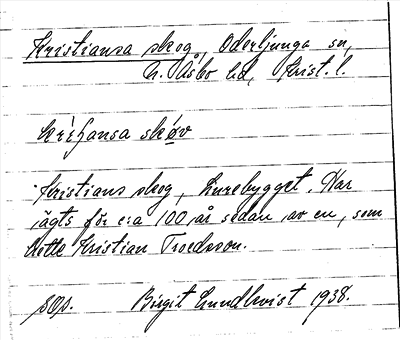 Kristiansa skog, Oderljunga sn,
N. Åsbo hd, Krist. l.
krìʃansa skøv
Kristians skog, Lurebygget. Har
ägts för c:a 100 år sedan av en, som
hette Kristian Troedsson.
sop. Birgit Lundkvist 1938.